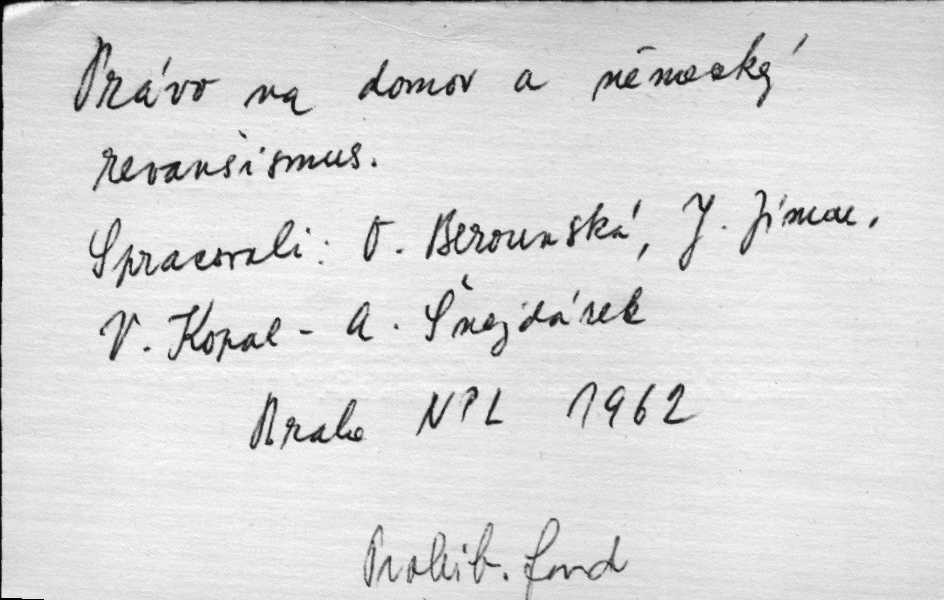 Právo na domov a německý
revanšismus.
Spracovali: O. Berounská, J.
V. Kopal - A. Šnejdárek
Praha NPL 1962
Prohib. fond